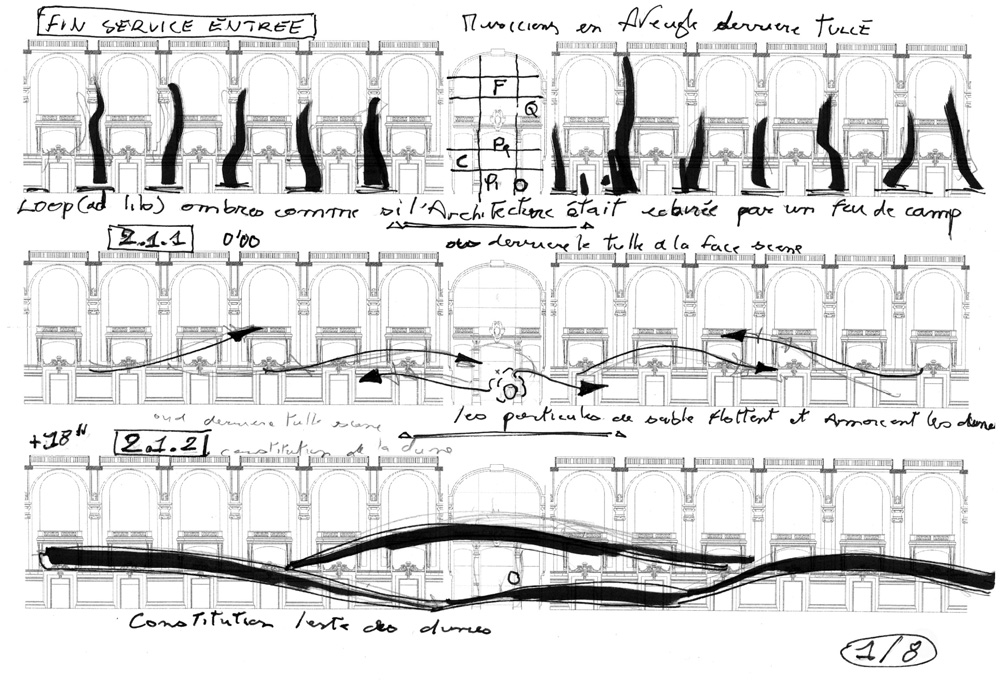 FIN SERVICE ENTREE
Musiciens en Aveugle derriere TULLE
F
Q
P9
C
P1
LOOP (ad lib) ombres comme si l'Architecture était eclairée par un feu de camp
2.1.1 0'00
derriere le tulle à la face scene
les particules de sable flottent et Amorcent les dunes
oud derriere tulle scene
+18"
2.1.2
constitution de la dune
Constitution lente des dunes
1/8